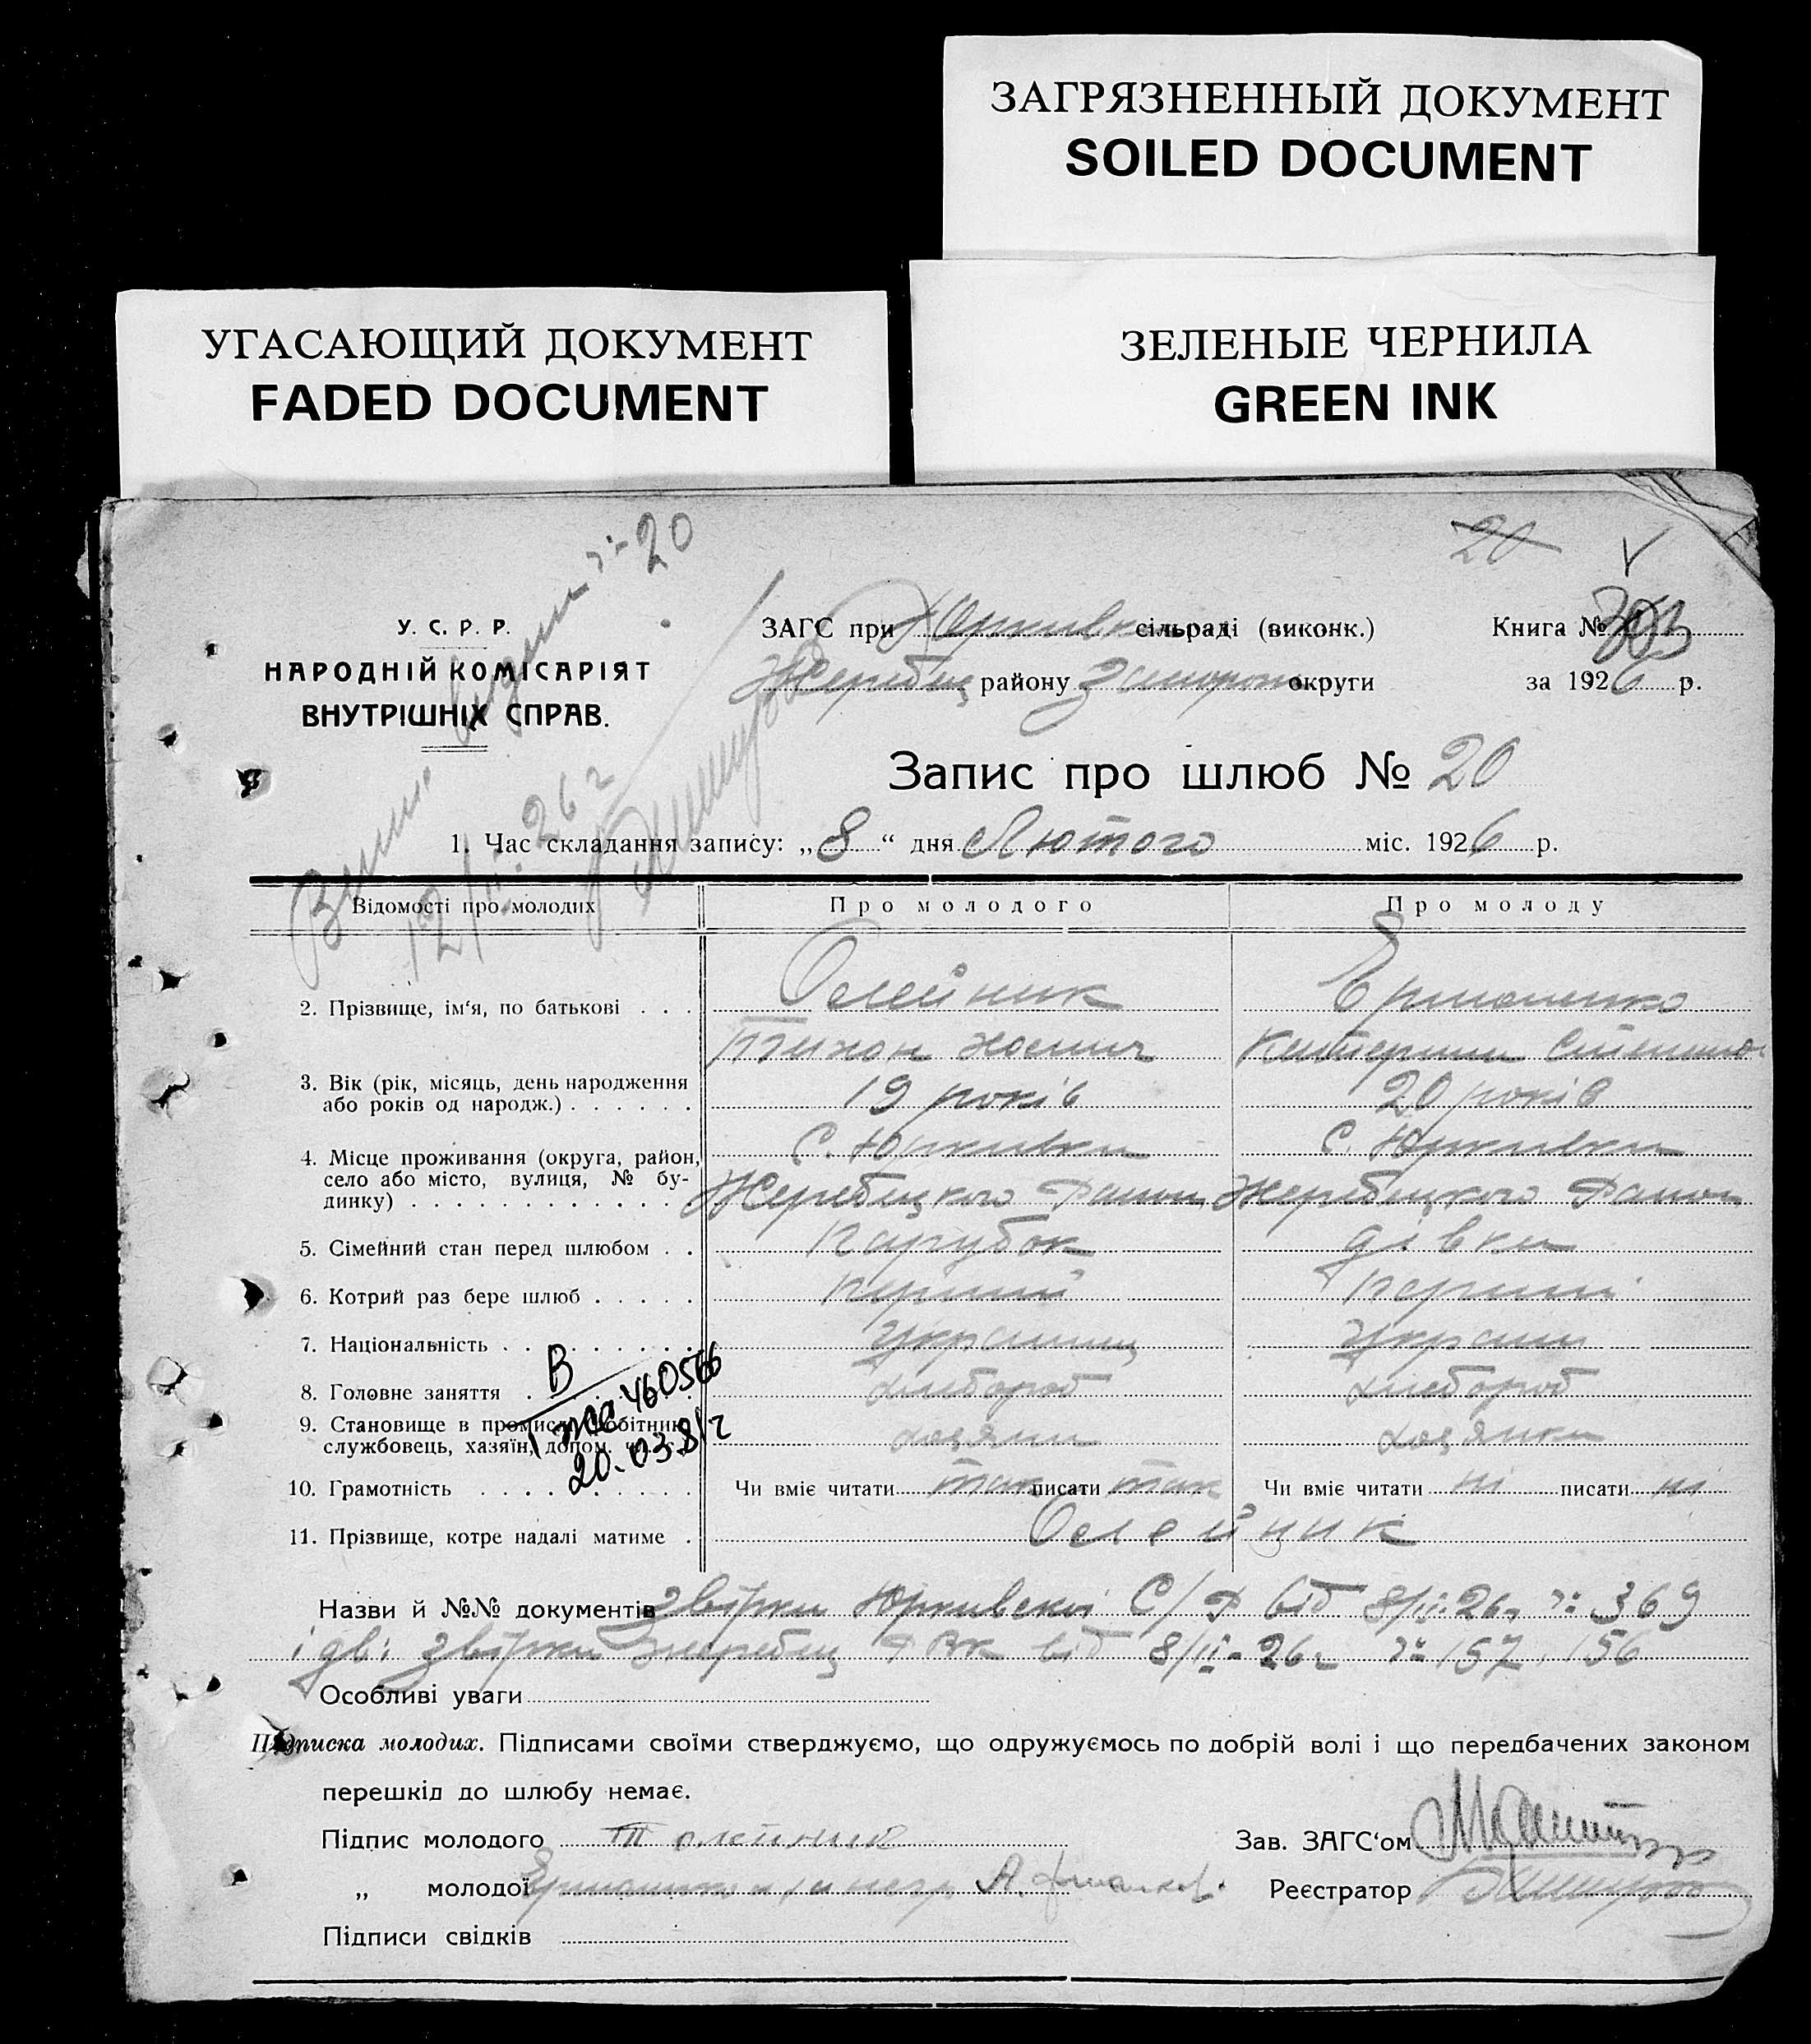 ЗАГРЯЗНЕННЫЙ ДОКУМЕНТ
SOILED DOCUMENT
УГАСАЮЩИЙ ДОКУМЕНТ
FADED DOCUMENT
ЗЕЛЕНЫЕ ЧЕРНИЛА
GREEN INK
20
20
У. С. Р. Р.
НАРОДНІЙ КОМІСАРІЯТ
ВНУТРІШНІХ СПРАВ.
12/II 26 г
ЗАГС при Юрківск сільраді (виконк.)
Книга №
Жеребец району Запорож округи
за 1926 р.
Запис про шлюб № 20
1. Час складання запису: „8“ дня Лютого міс. 1926 р.
Відомості про молодих Про молодого Про молоду
2. Прізвище, ім‘я, по батькові . . . Олейник Ермошенко
Тихон Катерина
3. Вік (рік, місяць, день народження
або років од народж.) . . . . . . 19 років 20 років
4. Місце проживання (округа, район, С. Юрківка С. Юрківка
село або місто, вулиця, № бу-
динку) . . . . . . . . . . . . Жеребецкого Району Жеребецкого Району
5. Сімейний стан перед шлюбом . . Парубок дівка
6. Котрий раз бере шлюб . . . . . перший перший
7. Національність . . . . . . . . . Українец Україн
8. Головне заняття . хлібороб хлібороб
В
460566
20.03.81г
9. Становище в промислі (робітник,
службовець, хазяїн, допом. хазяин хазяйка
10. Грамотність . . . . . . . . . . Чи вміє читати так писати так Чи вміє читати ні писати ні
11. Прізвище, котре надалі матиме . Олейник
Назви й №№ документів Юрківскої С/Р від 8/II-26г № 369
і дві Жеребец РВК від 8/II-26г № 157, 156
Особливі уваги
Підписка молодих. Підписами своїми стверджуємо, що одружуємось по добрій волі і що передбачених законом
перешкід до шлюбу немає.
Підпис молодого
Зав. ЗАГС‘ом
„ молодої
Реєстратор
Підписи свідків